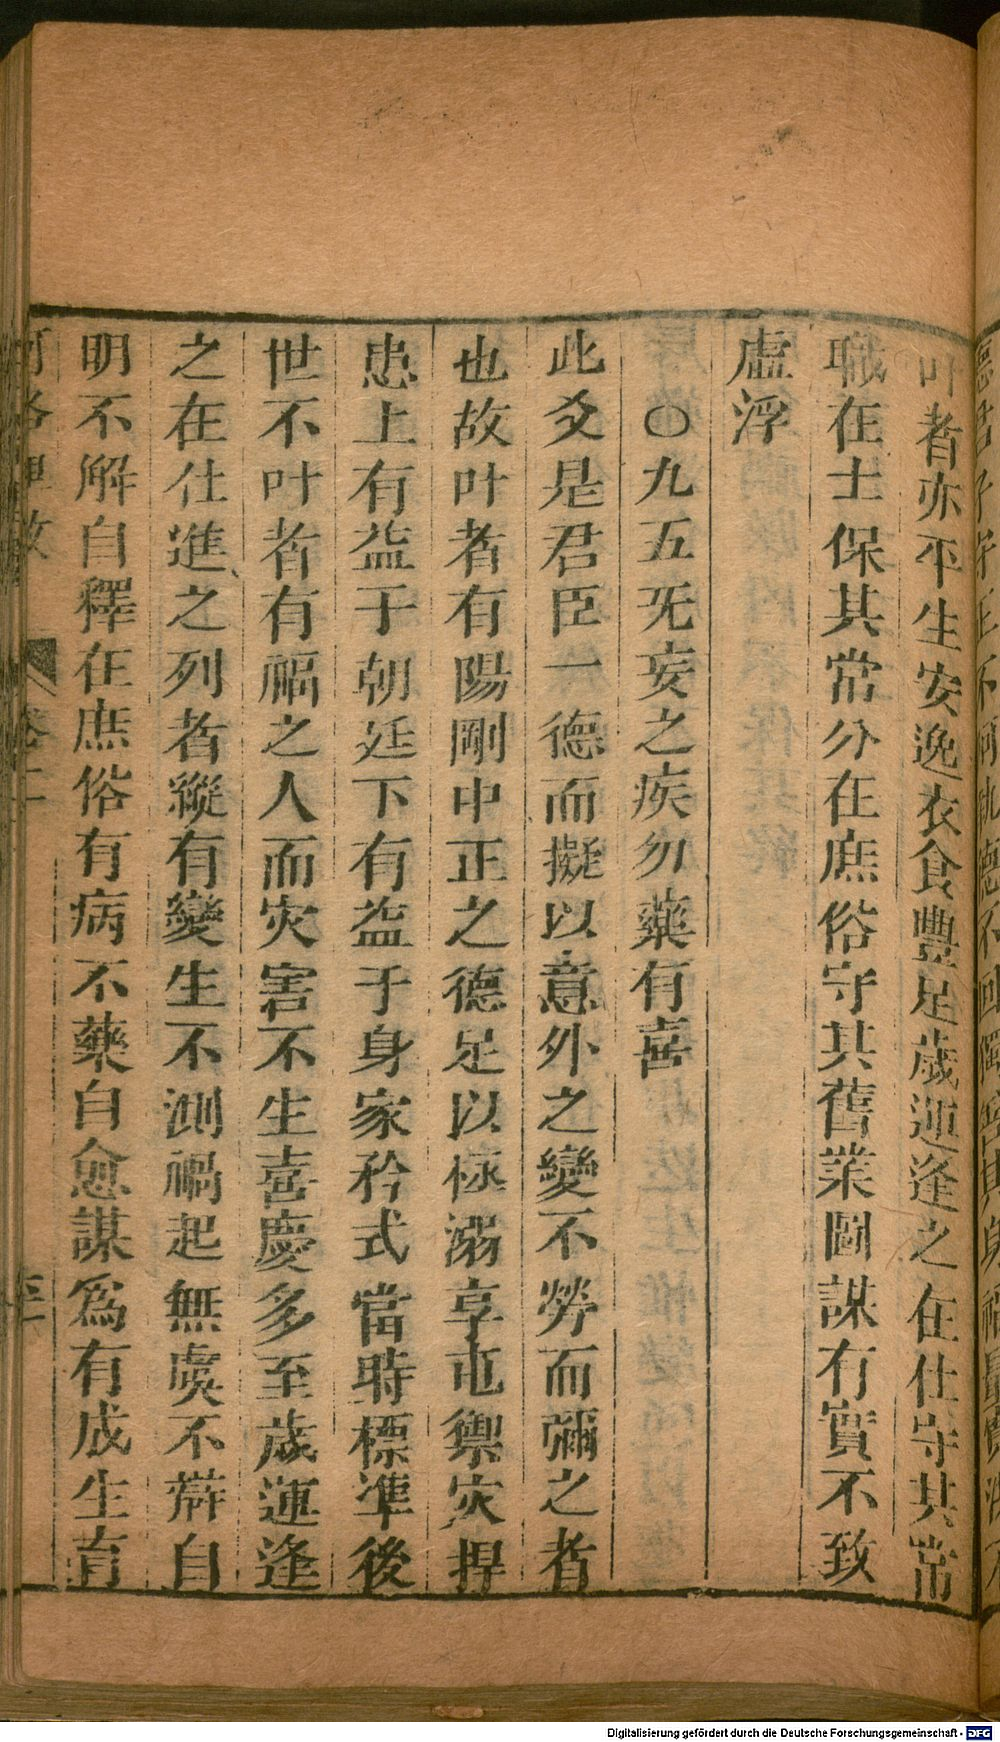 叶者亦平生安逸衣食豐足歲運逢之在仕守其常
職在士保其常分在庶俗守其舊業圖謀有實不致
虛浮
○九五旡妄之疾勿藥有喜
此爻是君臣一德而擬以意外之變不勞而彌之者
也故叶者有陽剛中正之德足以極溺享屯禦灾捍
患上有益于朝廷下有益于身家矜式當時標準後
世不叶者有福之人而灾害不生喜慶多至歲運逢
之在仕進之列者縱有變生不測禍起無虞不辯自
明不解自釋在庶俗有病不藥自愈謀爲有成生育
Digitalisierung gefördert durch die Deutsche Forschungsgemeinschaft - DFG